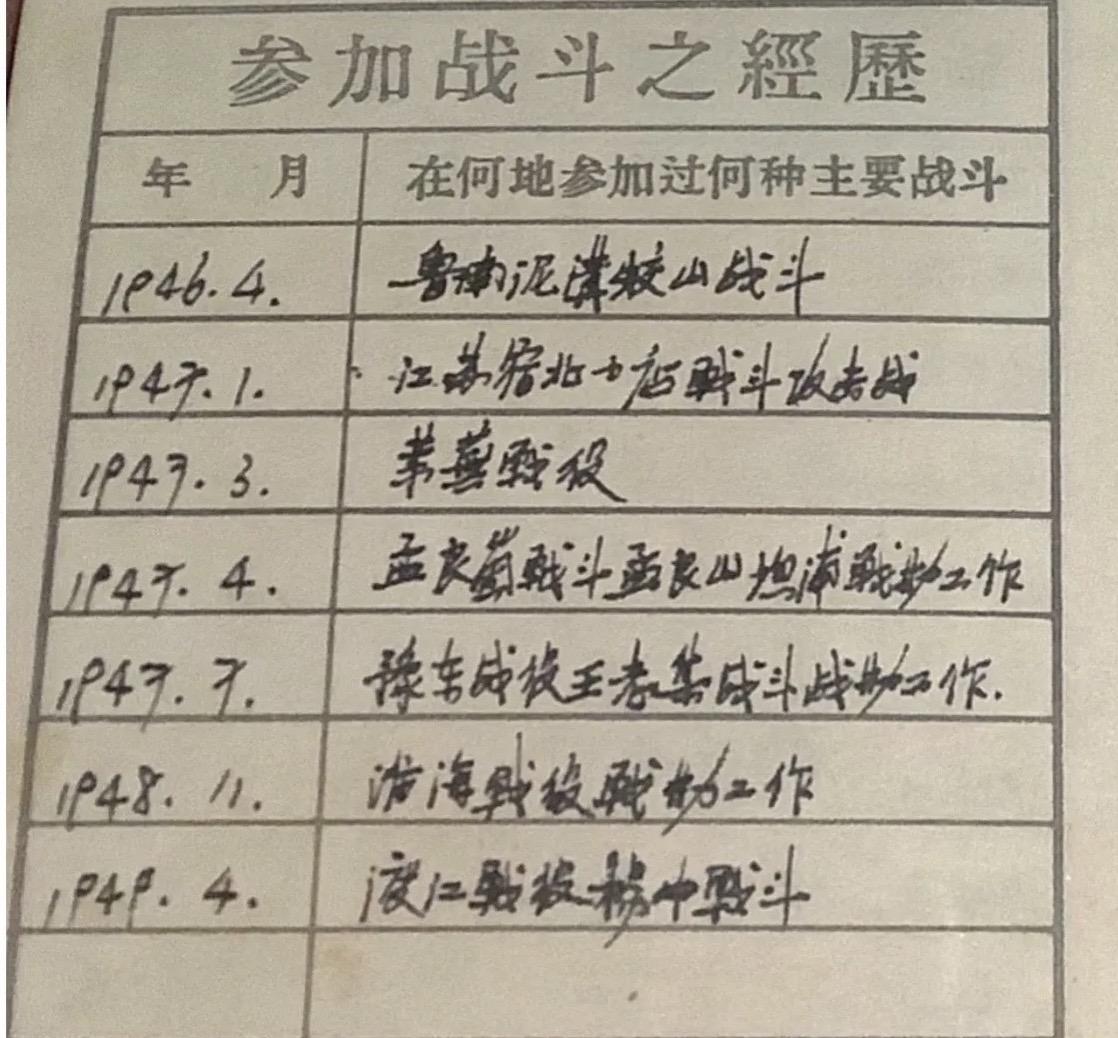 参加战斗之經歷
年 月 在何地参加过何种主要战斗
1946.4. 鲁南泥溝 山战斗
1947.1. 江苏宿北 店戰斗攻击战
1947.3. 莱蕪戰役
1947.4. 孟良崮戰斗孟良山坦浦戰勤工作
1947.7. 豫东战役王老集战斗战勤工作.
1948.11. 淮海戰役戰勤工作
1949.4. 渡江戰役揚中戰斗